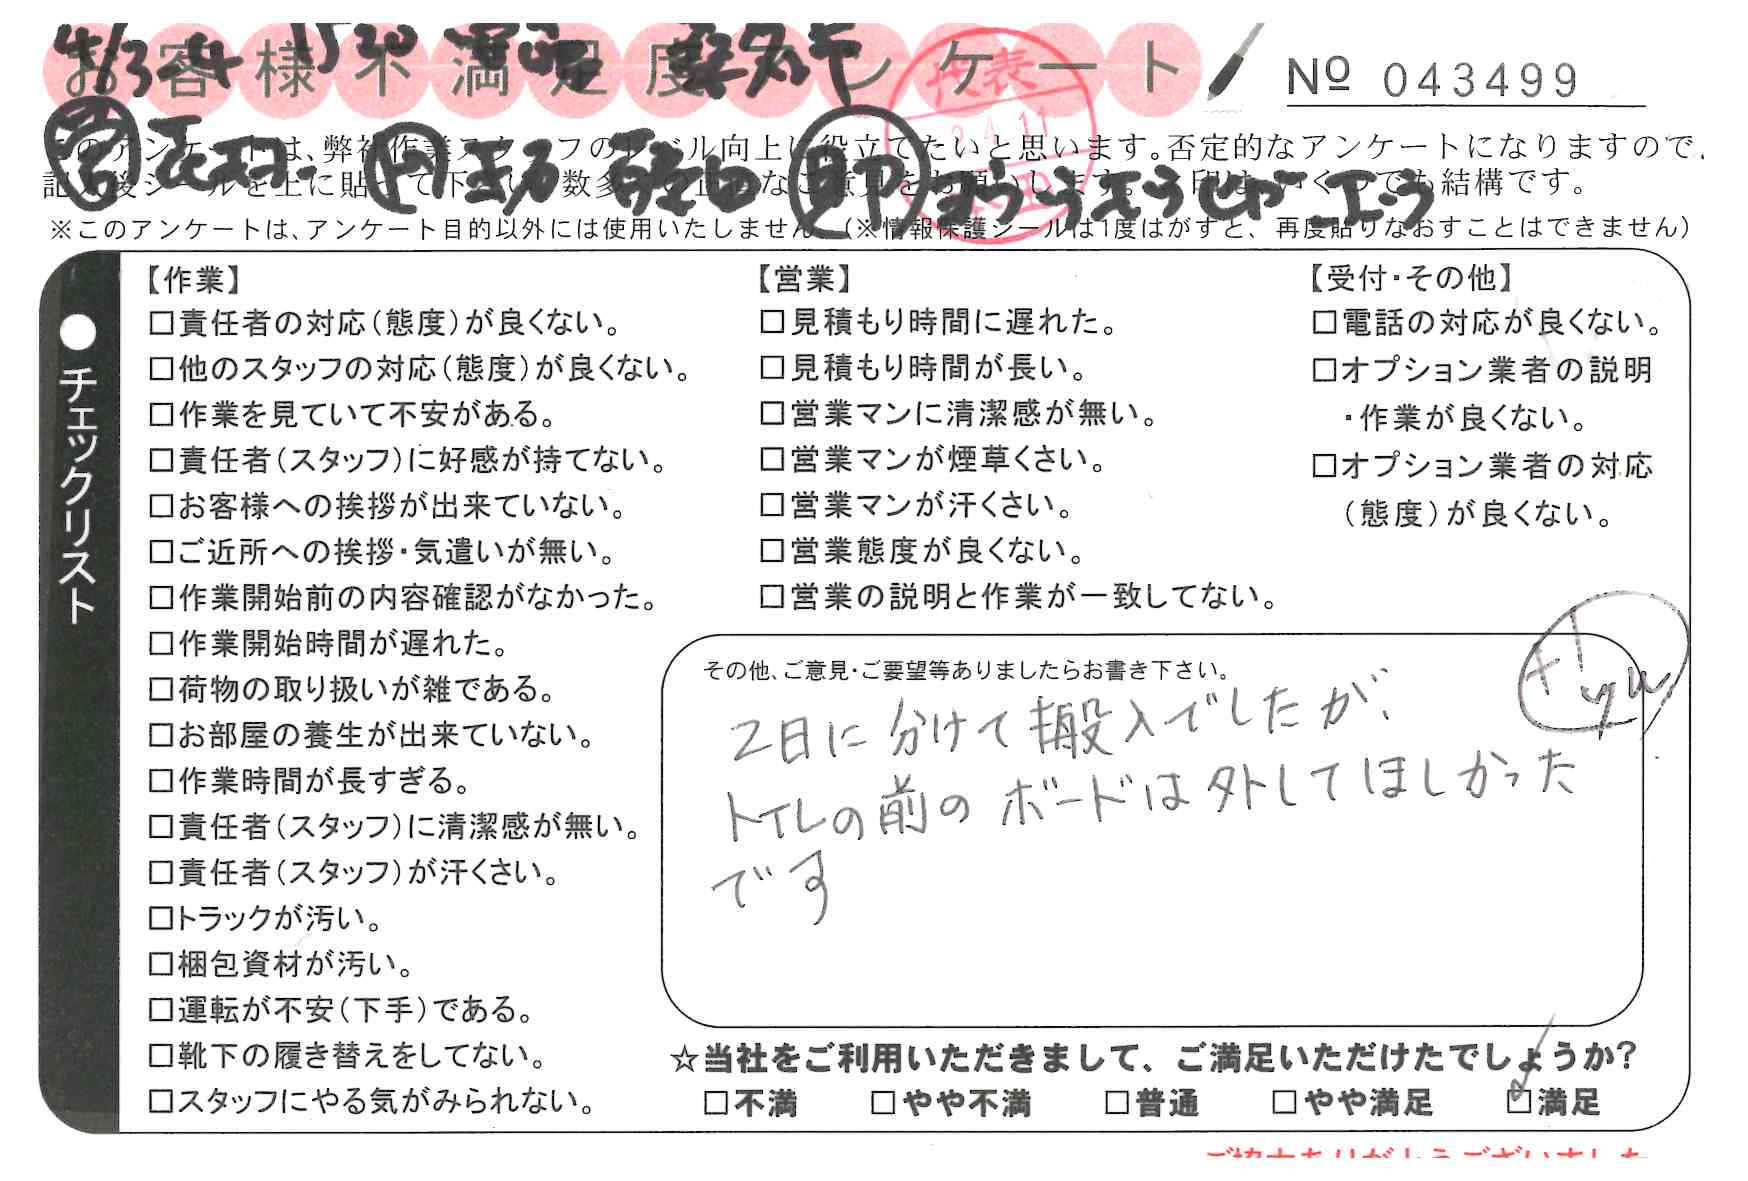 お客様不満足度アンケート
№ 043499
このアンケートは、弊社作業スタッフのレベル向上に役立てたいと思います。否定的なアンケートになりますので、
※このアンケートは、アンケート目的以外には使用いたしません。(※情報保護シールは1度はがすと、再度貼りなおすことはできません)
●チェックリスト
【作業】
□責任者の対応(態度)が良くない。
□他のスタッフの対応(態度)が良くない。
□作業を見ていて不安がある。
□責任者(スタッフ)に好感が持てない。
□お客様への挨拶が出来ていない。
□ご近所への挨拶・気遣いが無い。
□作業開始前の内容確認がなかった。
□作業開始時間が遅れた。
□荷物の取り扱いが雑である。
□お部屋の養生が出来ていない。
□作業時間が長すぎる。
□責任者(スタッフ)に清潔感が無い。
□責任者(スタッフ)が汗くさい。
□トラックが汚い。
□梱包資材が汚い。
□運転が不安(下手)である。
□靴下の履き替えをしてない。
□スタッフにやる気がみられない。
【営業】
□見積もり時間に遅れた。
□見積もり時間が長い。
□営業マンに清潔感が無い。
□営業マンが煙草くさい。
□営業マンが汗くさい。
□営業態度が良くない。
□営業の説明と作業が一致してない。
【受付・その他】
□電話の対応が良くない。
□オプション業者の説明
・作業が良くない。
□オプション業者の対応
(態度)が良くない。
その他、ご意見・ご要望等ありましたらお書き下さい。
2日に分けて搬入でしたが、
トイレの前のボードは外してほしかった
です
☆当社をご利用いただきまして、ご満足いただけたでしょうか?
□不満 □やや不満 □普通 □やや満足 ☑満足
ご協力ありがとうございました